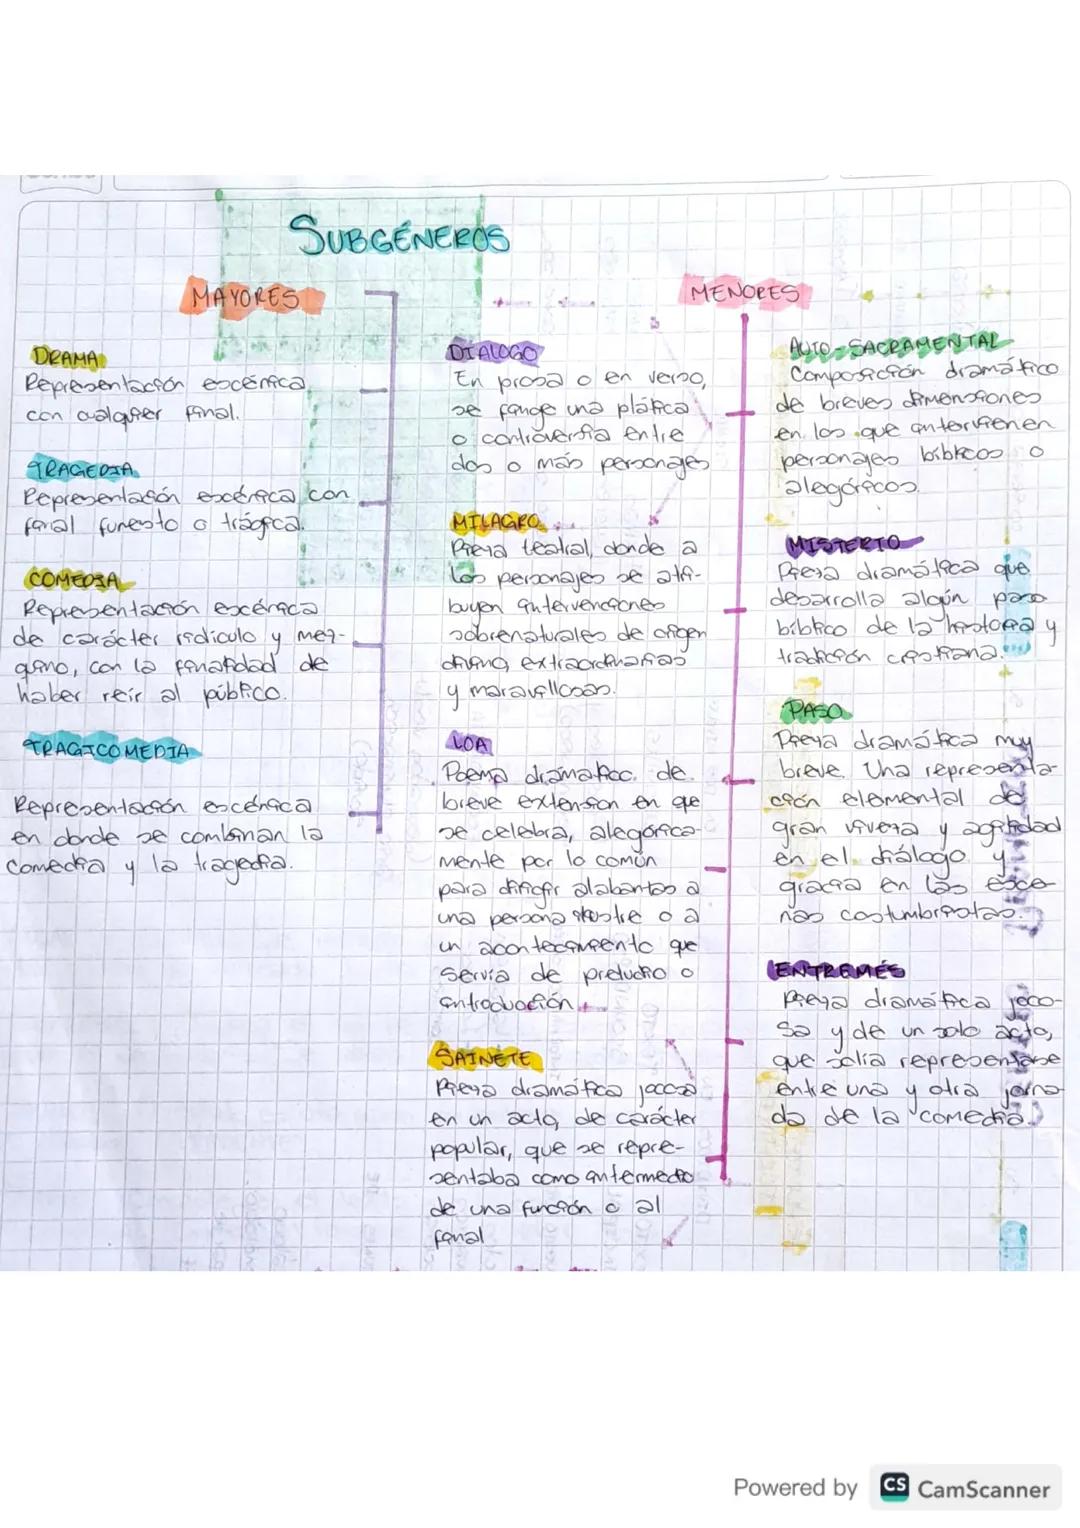 SUBGÉNEROS
MAYORES
DRAMA
Representación escénica
con cualquier final.
TRAGEDIA
Representación escénica con
final funesto o trágica.
COMEDIA
Representación escénica
de carácter ridiculo y mez-
quino, con la finalidad de
haber reir al público.
TRAGICOMEDIA
Representación escénica
en donde se combinan la
comedia y la tragedia.
MENORES
DIALOGO
En prosa o en verso,
se finge una plática
o controversia entre
dos o más personajes
MILAGRO
Pieza teatral, donde a
los personajes se atri-
buyen intervenciones
sobrenaturales de origen
divino, extraordinarias
y maravillosas.
LOA
Poema dramatico. de
breve extension en que
se celebra, alegórica-
mente por lo común
para dirigir alabantas a
una persona ilustre o a
un acontecimiento que
servia de preludio o
introducción.
SAINETE
Pieza dramática jocosa
en un acto, de carácter
popular, que se repre-
sentaba como intermedio
de una función o al
final
AUTO-SACRAMENTAL
Composición dramático
de breves dimensiones
en los que intervienen
personajes bíblicos o
alegóricos.
MISTERIO
Pieza dramática que
desarrolla algún paso
bíblico de la historia y
tradición cristiana.
PASO
Pieza dramática muy
breve. Una representa-
ción elemental de
gran viveza y agilidad
en el diálogo y
gracia en las esce-
nas costumbristas.
ENTREMÉS
Pieza dramática joco-
sa y de un solo acto,
que solía representarse
entre una y otra jorna-
da de la comedia.
Powered by CS CamScanner